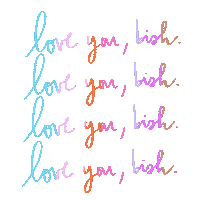 love you, bish.
love you, bish.
love you, bish.
love you, bish.